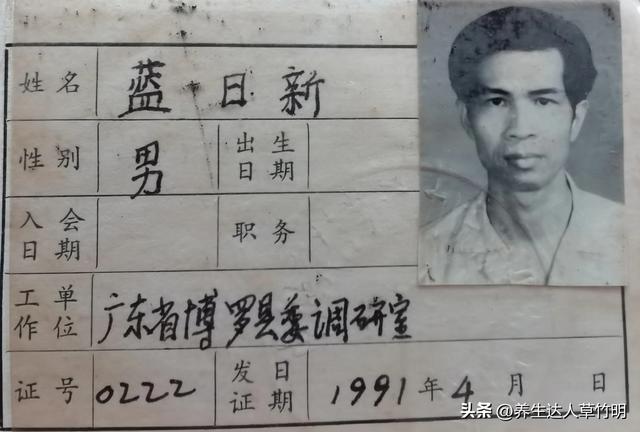 姓名 蓝日新
性别 男 出生日期
入会日期 职务
工作单位 广东省博罗县委调研室
证号 0222 发证日期 1991年4月 日
头条 @养生达人草竹明